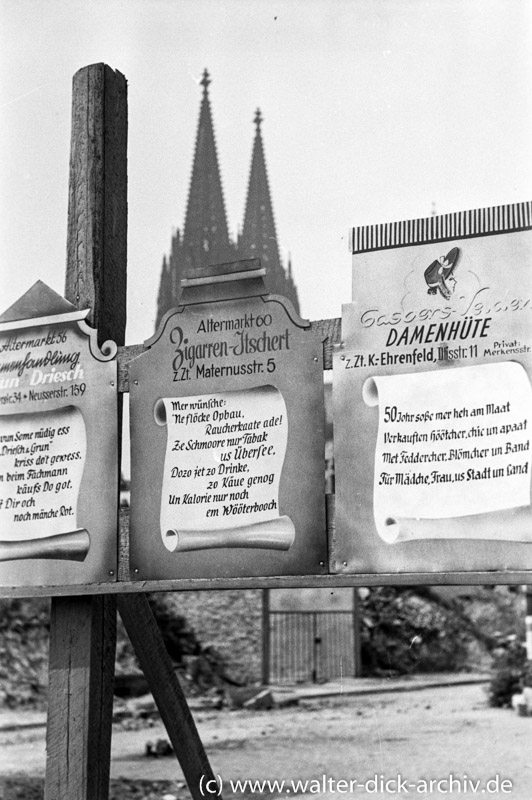 Altermarkt 56
menhandlung
un" Driesch
str. 34 + Neusserstr. 159
wun Some nüdig ess
"Driesch & Grun"
kriss do't gewess.
n beim Fachmann
käufs Do got,
t Dir och
noch mänche Rot.
Altermarkt 60
Zigarren-Itschert
z. Zt. Maternusstr. 5
Mer wünsche:
Ne flöcke Opbau,
Raucherkaate ade!
Ze Schmoore nur Tabak
us Übersee,
Dozo jet zo Drinke,
zo Käue genog
Un Kalorie nur noch
em Wööterbooch
DAMENHÜTE
z. Zt. K.-Ehrenfeld, Dffsstr. 11
Privat:
Merkensstr.
50 Johr soße mer heh am Maat
Verkauften Höötcher, chic un apaat
Met Feddercher, Blömcher un Band
Für Mädche, Frau, us Stadt un Land
(c) www.walter-dick-archiv.de